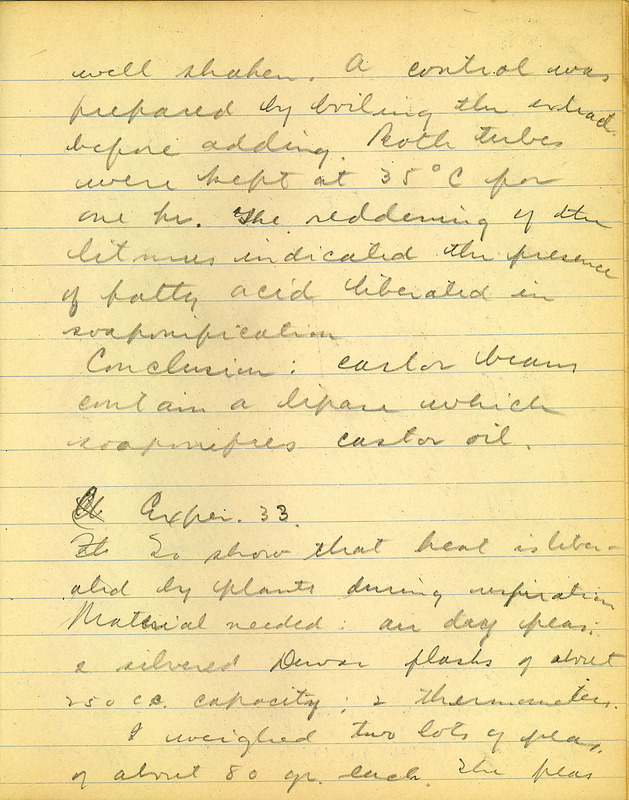 well shaken. A control was
prepared by boiling the extract
before adding. Both tubes
were kept at 35°C for
one hr. The reddening of the
litmus indicated the presence
of fatty acid liberated in
saponification
Conclusion: castor beans
contain a lipase which
saponifies castor oil.
Exper. 33.
To show that heat is liber-
ated by plants during respiration
Material needed: air dry peas;
2 silvered Dewar flasks of about
250 cc. capacity; 2 thermometers.
I weighed two lots of peas,
of about 80 gr. each. The peas